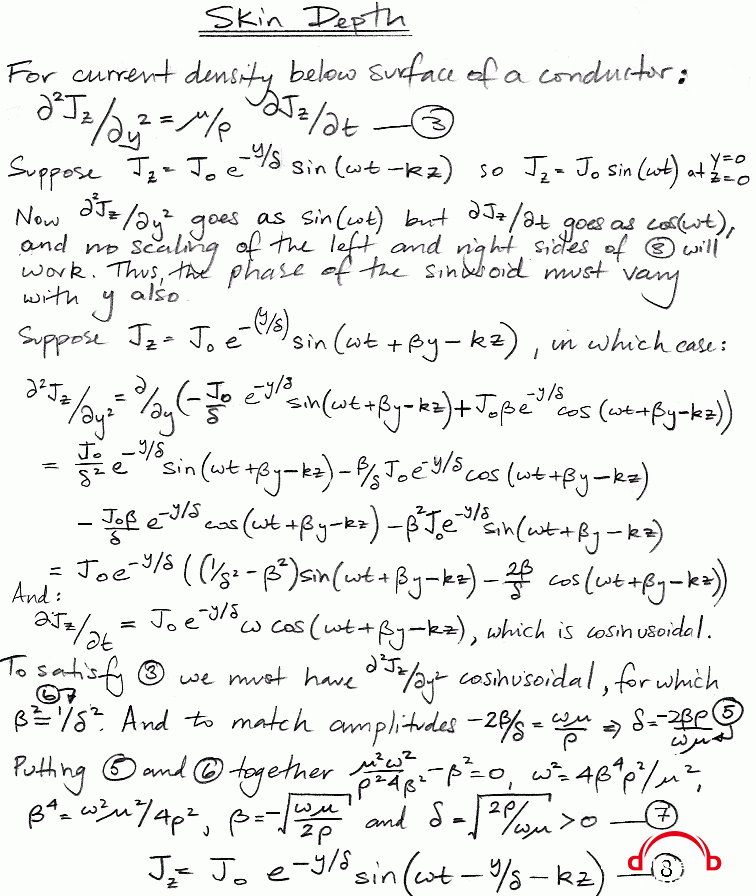 Skin Depth
For current density below surface of a conductor:
∂²Jz/∂y² = μ/ρ ∂Jz/∂t — ③
Suppose Jz = J₀ e^(-y/δ) sin(ωt - kz) so Jz = J₀ sin(ωt) at y=0 z=0
Now ∂²Jz/∂y² goes as sin(ωt) but ∂Jz/∂t goes as cos(ωt),
and no scaling of the left and right sides of ③ will
work. Thus, the phase of the sinusoid must vary
with y also
Suppose Jz = J₀ e^-(y/δ) sin(ωt + βy - kz), in which case:
∂²Jz/∂y² = ∂/∂y(-J₀/δ e^(-y/δ) sin(ωt+βy-kz) + J₀βe^(-y/δ) cos(ωt+βy-kz))
= J₀/δ² e^(-y/δ) sin(ωt+βy-kz) - β/δ J₀e^(-y/δ) cos(ωt+βy-kz)
- J₀β/δ e^(-y/δ) cos(ωt+βy-kz) - β²J₀e^(-y/δ) sin(ωt+βy-kz)
= J₀e^(-y/δ) ((1/δ² - β²)sin(ωt+βy-kz) - 2β/δ cos(ωt+βy-kz))
And:
∂Jz/∂t = J₀e^(-y/δ) ω cos(ωt+βy-kz), which is cosinusoidal.
To satisfy ③ we must have ∂²Jz/∂y² cosinusoidal, for which
⑥ 7
β² = 1/δ². And to match amplitudes -2β/δ = ωμ/ρ ⇒ δ = -2βρ/ωμ ⑤
Putting ⑤ and ⑥ together μ²ω²/ρ²4β² - β² = 0, ω² = 4β⁴ρ²/μ²,
β⁴ = ω²μ²/4ρ², β = -√(ωμ/2ρ) and δ = √(2ρ/ωμ) > 0 — ⑦
Jz = J₀ e^(-y/δ) sin(ωt - y/δ - kz) — ⑧